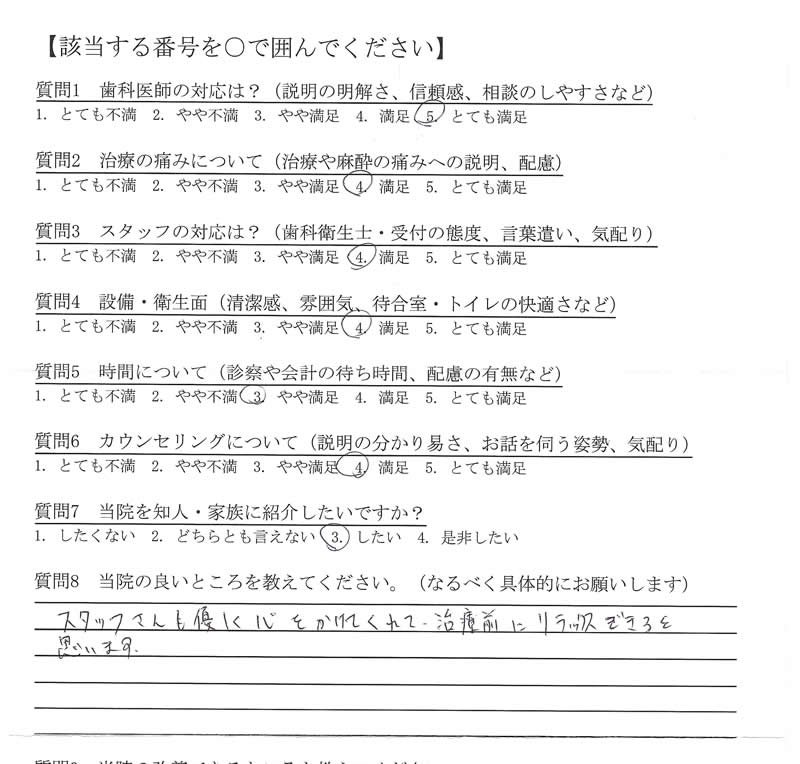 【該当する番号を○で囲んでください】
質問1 歯科医師の対応は？（説明の明解さ、信頼感、相談のしやすさなど）
1. とても不満 2. やや不満 3. やや満足 4. 満足 5. とても満足
質問2 治療の痛みについて（治療や麻酔の痛みへの説明、配慮）
1. とても不満 2. やや不満 3. やや満足 4. 満足 5. とても満足
質問3 スタッフの対応は？（歯科衛生士・受付の態度、言葉遣い、気配り）
1. とても不満 2. やや不満 3. やや満足 4. 満足 5. とても満足
質問4 設備・衛生面（清潔感、雰囲気、待合室・トイレの快適さなど）
1. とても不満 2. やや不満 3. やや満足 4. 満足 5. とても満足
質問5 時間について（診察や会計の待ち時間、配慮の有無など）
1. とても不満 2. やや不満 3. やや満足 4. 満足 5. とても満足
質問6 カウンセリングについて（説明の分かり易さ、お話を伺う姿勢、気配り）
1. とても不満 2. やや不満 3. やや満足 4. 満足 5. とても満足
質問7 当院を知人・家族に紹介したいですか？
1. したくない 2. どちらとも言えない 3. したい 4. 是非したい
質問8 当院の良いところを教えてください。（なるべく具体的にお願いします）
スタッフさんも優しく をかけてくれて、治療前にリラックスできると
思います。